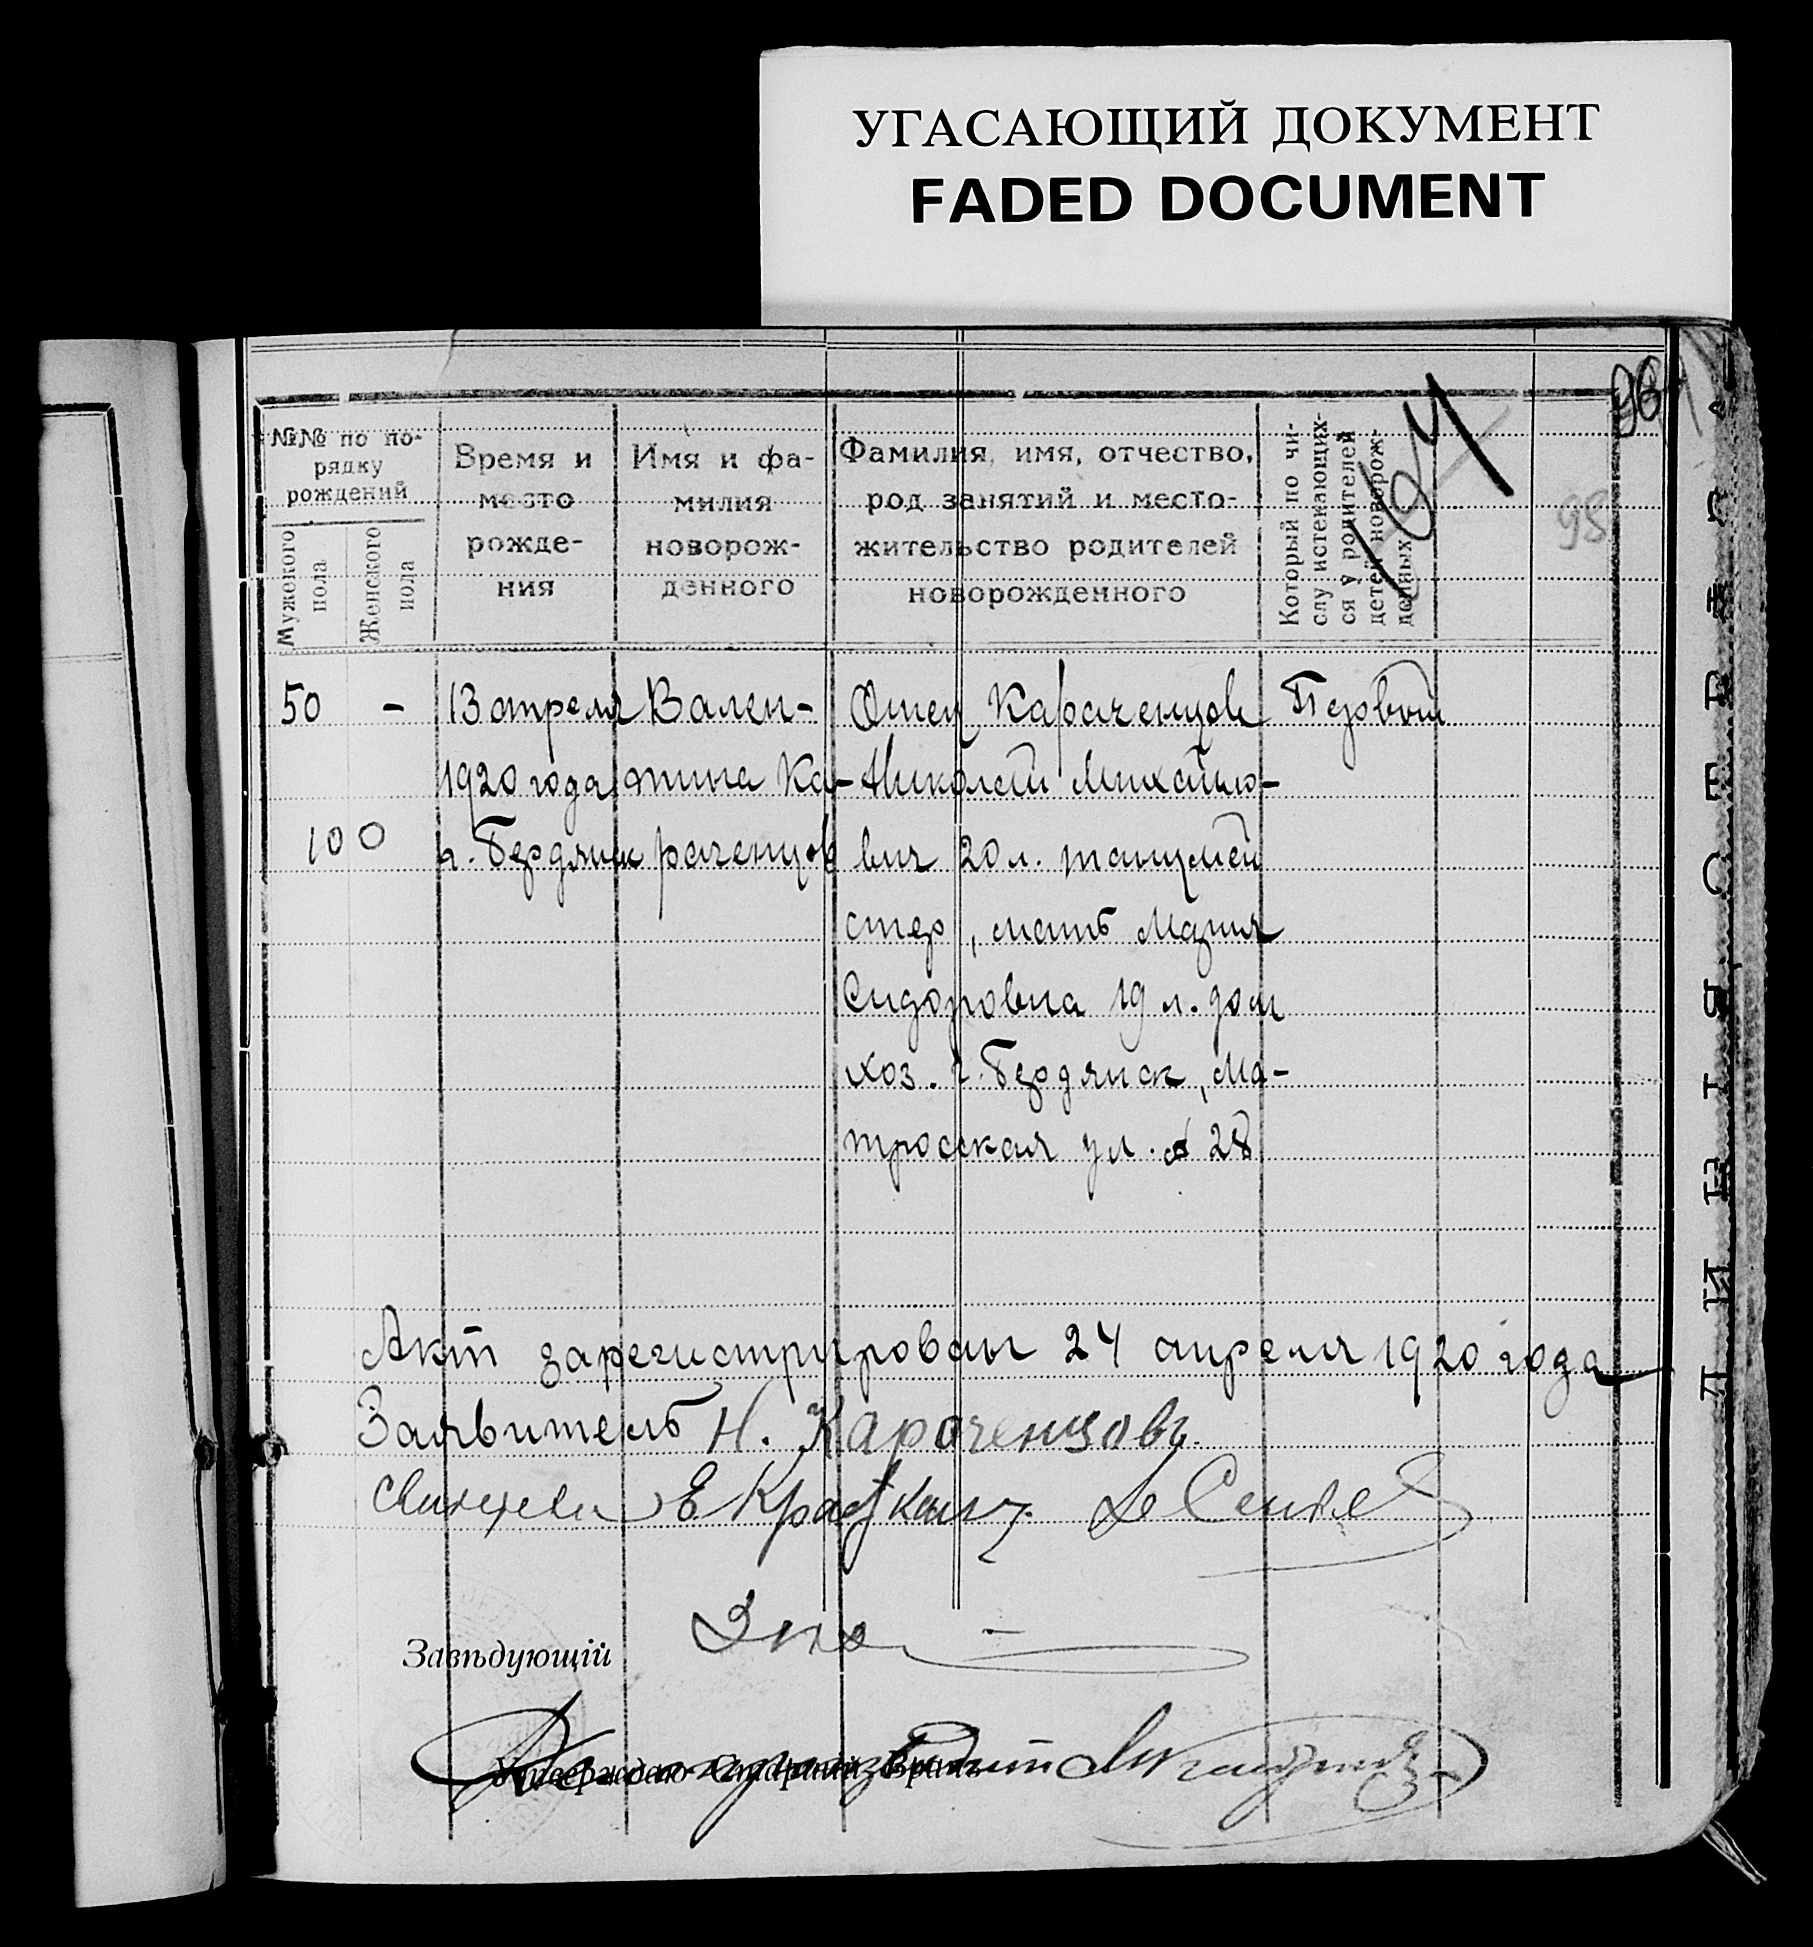 УГАСАЮЩИЙ ДОКУМЕНТ
FADED DOCUMENT
164
96
98
№№ по по-
рядку
рождений
Мужского
пола
Женского
пола
Время и
место
рожде-
ния
Имя и фа-
милия
новорож-
денного
Фамилия, имя, отчество,
род занятий и место-
жительство родителей
новорожденного
Который по чи-
слу истекающих-
ся у родителей
детей новорож-
денных
50 -
100
13 апреля
1920 года
г. Бердянск
Вален-
тина Ка-
раченцов
Отец Караченцов
Николай Михайло-
вич 20 л. танцмей
стер, мать Мария
Сидоровна 19 л. дом
хоз. г. Бердянск, Ма-
тросская ул. 28
Первый
Акт зарегистрирован 24 апреля 1920 года
Заявитель Н. Караченцовъ
Свидетели Е
Завѣдующій
Утверждаю Старшій Врачъ